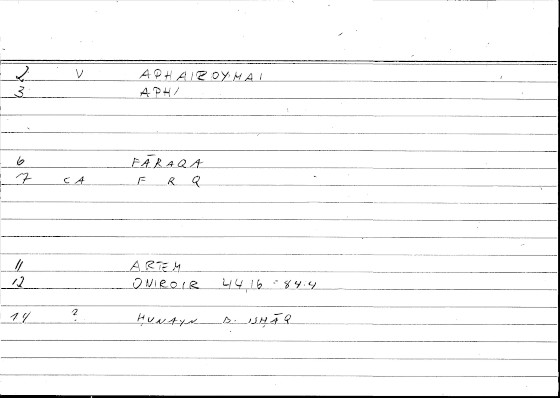 2 V APHAIROYMAI
3 APH/
6 FĀRAQA
7 CA F R Q
11 ARTEM
12 ONIROIR 44,16 - 84.4
14 ? ḤUNAYN B. ISḤĀQ